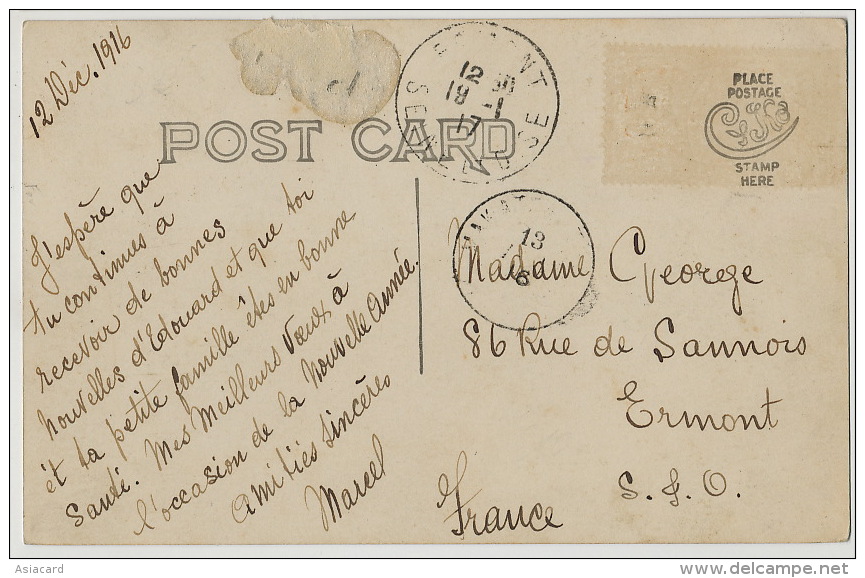 12 Déc. 1916
POST CARD
PLACE
POSTAGE
STAMP
HERE
12 31
18 -1
17
13
J'espère que
tu continues à
recevoir de bonnes
nouvelles d'Edouard et que toi
et ta petite famille êtes en bonne
santé. Mes Meilleurs Vœux à
l'occasion de la Nouvelle Année.
Amitiés Sincères
Marcel
Madame George
86 Rue de Sannois
Ermont
S. &. O.
France
Asiacard
www.delcampe.net